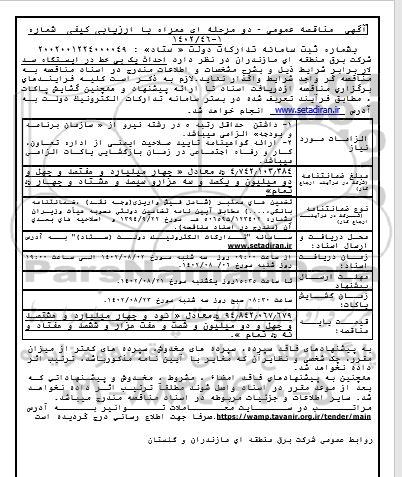 آگهی مناقصه عمومی - دو مرحله ای همراه با ارزیابی کیفی شماره
۱۴۰۲/۴۶-۱
بشماره ثبت سامانه تدارکات دولت « ستاد» : ۲۰۰۲۰۰۱۲۲۴۰۰۰۰۴۹
شرکت برق منطقه ای مازندران در نظر دارد احداث یک بی خط در ایستگاه سد
لار برابر شرایط ذیل و بشرح مشخصات و اطلاعات مندرج در اسناد مناقصه به
مناقصه گر واجد شرایط واگذار نماید.لازم به ذکر است کلیه فرایندهای
برگزاری مناقصه ازدریافت اسناد تا ارائه پیشنهاد و همچنین گشایش پاکات
، مطابق فرآیند تعریف شده در بستر سامانه تدارکات الکترونیک دولت به
آدرس www.setadiran.ir انجام خواهد شد.
الزامات مورد نیاز
۱- داشتن حداقل رتبه ۵ در رشته نیرو از « سازمان برنامه
و بودجه» الزامی میباشد.
۲- ارائه گواهینامه تایید صلاحیت ایمنی از اداره تعاون،
کار و رفاه اجتماعی در زمان بازگشایی پاکات الزامی
میباشد.
مبلغ ضمانتنامه
۴,۷۴۲,۱۰۳,۳۸۴ معادل « چهار میلیارد و هفتصد و چهل و
دو میلیون و یکصد و سه هزار و سیصد و هشتاد و چهار
تمام»
نوع ضمانتنامه
تضمین های معتبر (شامل فیش واریزی(وجه نقد) ،ضمانتنامه
بانکی،....) مطابق آیین نامه تضامین دولتی مصوبه هیات وزیران
محل دریافت و ارسال اسناد:
"سامانه "تدارکات الکترونیک دولت (ستاد)" به آدرس
www.setadiran.ir
زمان دریافت اسناد:
از ساعت ۰۹:۰۰ روز سه شنبه مورخ ۱۴۰۲/۰۸/۰۲ الی ساعت ۱۹:۰۰
روز شنبه مورخ ۱۴۰۲/۰۸/۰۶
مهلت ارسال پیشنهاد
تا ساعت ۱۵:۰۰ روز یکشنبه مورخ ۱۴۰۲/۰۸/۲۱
زمان گشایش پاکات
ساعت ۰۸:۳۰ صبح روز سه شنبه مورخ ۱۴۰۲/۰۸/۲۳
قیمت پایه مناقصه:
۹۴,۸۴۲,۰۶۷,۶۷۹ معادل « نود و چهار میلیارد و هشتصد
و چهل و دو میلیون و شصت و هفت هزار و ششصد و هفتاد و
نه تمام ».
به پیشنهادهای فاقد سپرده، سپرده های مخدوش، سپرده های کمتر از میزان
مقرر، چک شخصی و نظایرآن که مغایر با آیین نامه مذکورباشد، ترتیب اثر
داده نخواهد شد.
همچنین به پیشنهادهای فاقد امضاء، مشروط ، مخدوش و پیشنهاداتی که
بعد از موعد مقرر در اسناد واصل شوند مطلقا ترتیب اثر داده نخواهد
شد. سایر اطلاعات و جزئیات مربوطه در اسناد مناقصه مندرج میباشد.
مراتب در سایت معاملات توانیر به آدرس
https://wamp.tavanir.org.ir/tender/main.صرفا جهت اطلاع رسانی درج گردیده است
روابط عمومی شرکت برق منطقه ای مازندران و گلستان